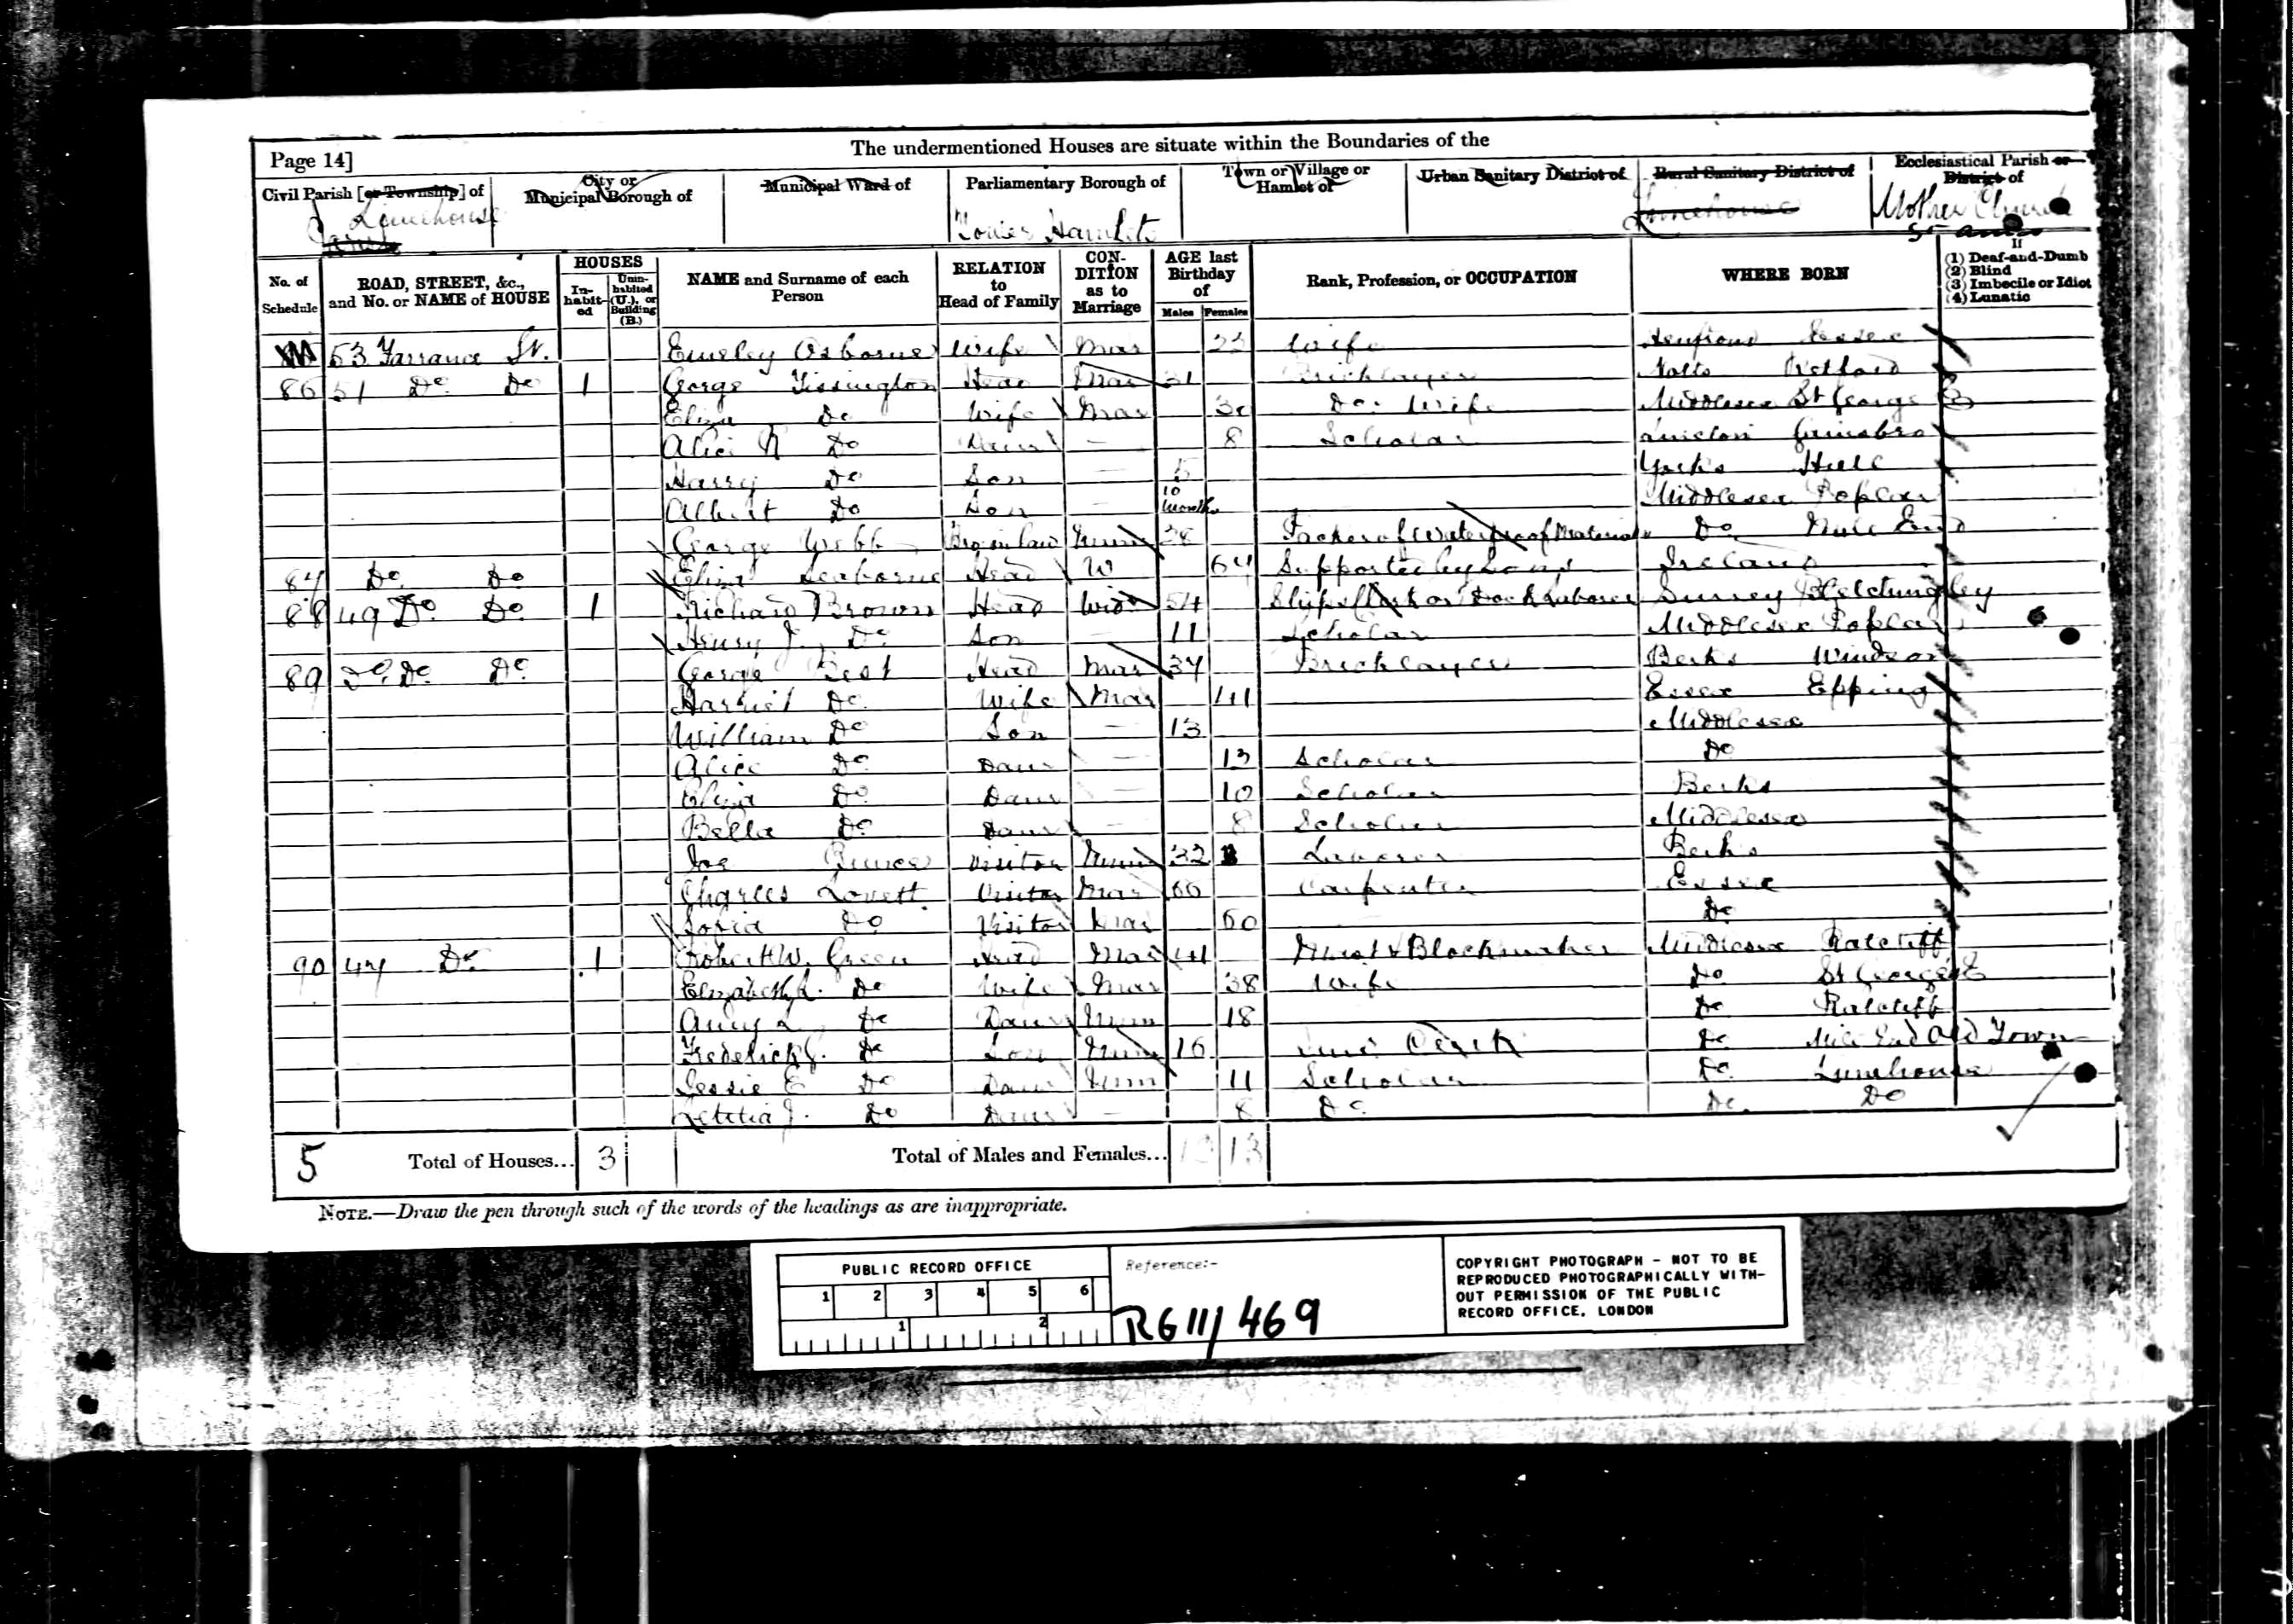 The undermentioned Houses are situate within the Boundaries of the
Page 14]
Civil Parish [or Township] of
City or Municipal Borough of
Municipal Ward of
Parliamentary Borough of
Town or Village or Hamlet of
Urban Sanitary District of
Rural Sanitary District of
Ecclesiastical Parish or District of
Limehouse Tower Hamlets Limehouse Mother Church
St Anns
No. of Schedule
ROAD, STREET, &c., and No. or NAME of HOUSE
HOUSES
Inhabited
Uninhabited (U.), or Building (B.)
NAME and Surname of each Person
RELATION to Head of Family
CONDITION as to Marriage
AGE last Birthday of
Males Females
Rank, Profession, or OCCUPATION
WHERE BORN
If
(1) Deaf-and-Dumb
(2) Blind
(3) Imbecile or Idiot
(4) Lunatic
53 Farrance St. Emeley Osborne Wife Mar 23 Wife Essex
86 51 Do Do 1 George Tissington Head Mar 31 Bricklayer Notts Retford
Eliza Do Wife Mar Do. Wife Middlesex St George E
Alice Do Daur – 8 Scholar
Harry Do Son – 5 Yorks Hull
Albert Do Son – 10 months Middlesex Poplar
George Webb Bro in law Unm 28 Packer of Waterproof Materials Do Mile End
87 Do Do Eliza Seaborne Head W 64 Supported by Sons Ireland
88 49 Do Do 1 Richard Brown Head Widr 54 Ships Clerk or Dock Laborer Surrey Bletchingley
Henry J. Do Son – 11 Scholar Middlesex Poplar
89 Do. Do Do George Best Head Mar 37 Bricklayer Berks Windsor
Harriet Do Wife Mar 41 Essex Epping
William Do Son – 13 Middlesex
Alice Do Daur – 13 Scholar Do
Eliza Do Daur – 10 Scholar Berks
Bella Do Daur – 8 Scholar Middlesex
Joe Visitor Unm 32 Laborer Berks
Charles Lovett Visitor Mar 60 Carpenter Essex
Sofia Do Visitor Mar 60 Do
90 47 Do 1 Robert W. Green Head Mar 41 Mast & Blockmaker Middlesex Ratcliff
Elizabeth Do Wife Mar 38 Wife Do St Georges E
Amy L Do Daur Unm 18 Do Ratcliff
Frederick J. Do Son Unm 16 Clerk Do Mile End Old Town
Jessie E Do Daur Unm 11 Scholar Do Limehouse
Letitia J. Do Daur – 8 Do Do Do
5 Total of Houses... 3 Total of Males and Females... 12 13
NOTE.—Draw the pen through such of the words of the headings as are inappropriate.
PUBLIC RECORD OFFICE
1 2 3 4 5 6
1 2
Reference:-
RG 11/469
COPYRIGHT PHOTOGRAPH – NOT TO BE
REPRODUCED PHOTOGRAPHICALLY WITH-
OUT PERMISSION OF THE PUBLIC
RECORD OFFICE, LONDON